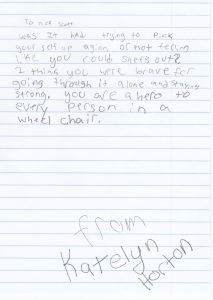 To nice scott
was it had trying to pick
your self up agian or not feeling
like you could sheets out?
I think you were brave for
going through it alone and staying
strong. you are a hero to
every person in a
wheel chair.
from
Katelyn
Horton